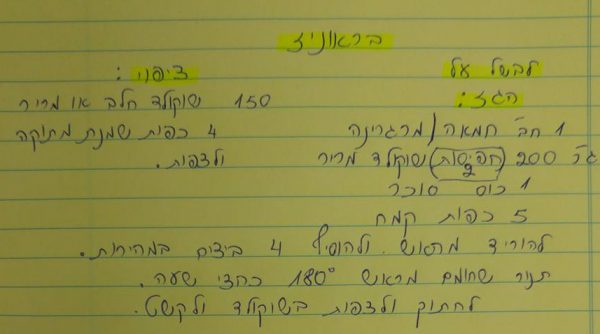 בראוניז
לבשל על
הגז:
1 חב' חמאה/מרגרינה
200 גר' (2 חפיסות) שוקולד מריר
1 כוס סוכר
5 כפות קמח
ציפוי:
150 שוקולד חלב או מריר
4 כפות שמנת מתוקה
ולצפות.
להוריד מהאש ולהוסיף 4 ביצים במהירות.
תנור שחומם מראש 180° כחצי שעה.
לחתוק ולצפות בשוקולד ולקשט.